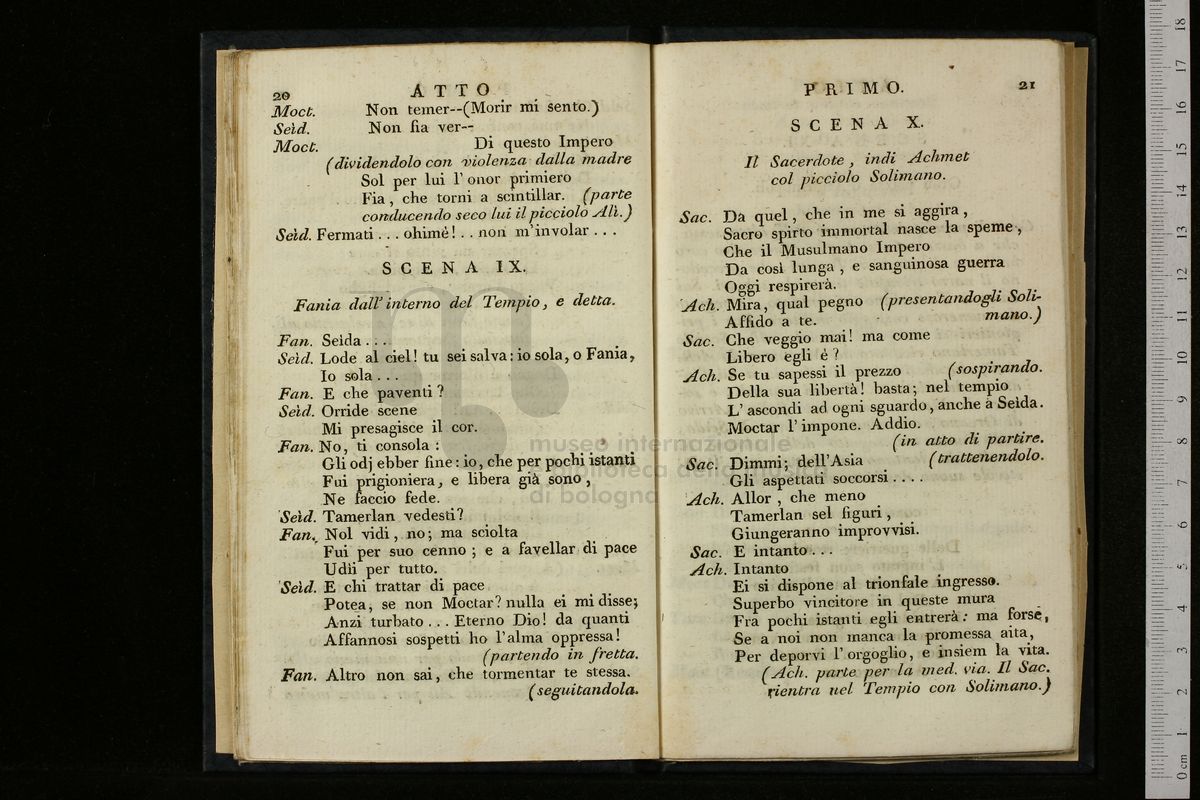 20
ATTO
Moct. Non temer--(Morir mi sento.)
Seìd. Non fia ver--
Moct. Di questo Impero
(dividendolo con violenza dalla madre
Sol per lui l'onor primiero
Fia, che torni a scintillar. (parte
conducendo seco lui il picciolo Alì.)
Seìd. Fermati... ohimè!.. non m'involar...
SCENA IX.
Fania dall'interno del Tempio, e detta.
Fan. Seìda...
Seìd. Lode al ciel! tu sei salva: io sola, o Fania,
Io sola...
Fan. E che paventi?
Seìd. Orride scene
Mi presagisce il cor.
Fan. No, ti consola:
Gli odj ebber fine: io, che per pochi istanti
Fui prigioniera, e libera già sono,
Ne faccio fede.
Seìd. Tamerlan vedesti?
Fan. Nol vidi, no; ma sciolta
Fui per suo cenno; e a favellar di pace
Udii per tutto.
Seìd. E chi trattar di pace
Potea, se non Moctar? nulla ei mi disse;
Anzi turbato... Eterno Dio! da quanti
Affannosi sospetti ho l'alma oppressa!
(partendo in fretta.
Fan. Altro non sai, che tormentar te stessa.
(seguitandola.
PRIMO.
21
SCENA X.
Il Sacerdote, indi Achmet
col picciolo Solimano.
Sac. Da quel, che in me si aggira,
Sacro spirto immortal nasce la speme,
Che il Musulmano Impero
Da così lunga, e sanguinosa guerra
Oggi respirerà.
Ach. Mira, qual pegno (presentandogli Soli-
Affido a te. mano.)
Sac. Che veggio mai! ma come
Libero egli è?
Ach. Se tu sapessi il prezzo (sospirando.
Della sua libertà! basta; nel tempio
L'ascondi ad ogni sguardo, anche a Seìda.
Moctar l'impone. Addio.
(in atto di partire.
Sac. Dimmi; dell'Asia (trattenendolo.
Gli aspettati soccorsi....
Ach. Allor, che meno
Tamerlan sel figuri,
Giungeranno improvvisi.
Sac. E intanto...
Ach. Intanto
Ei si dispone al trionfale ingresso.
Superbo vincitore in queste mura
Fra pochi istanti egli entrerà: ma forse,
Se a noi non manca la promessa aita,
Per deporvi l'orgoglio, e insiem la vita.
(Ach. parte per la med. via. Il Sac.
rientra nel Tempio con Solimano.)
museo internazionale
e biblioteca della musica
di bologna
0 cm 1 2 3 4 5 6 7 8 9 10 11 12 13 14 15 16 17 18